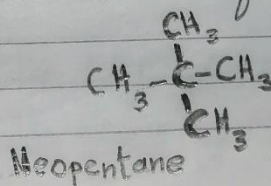 CH₃
CH₃-C-CH₃
CH₃
Neopentane